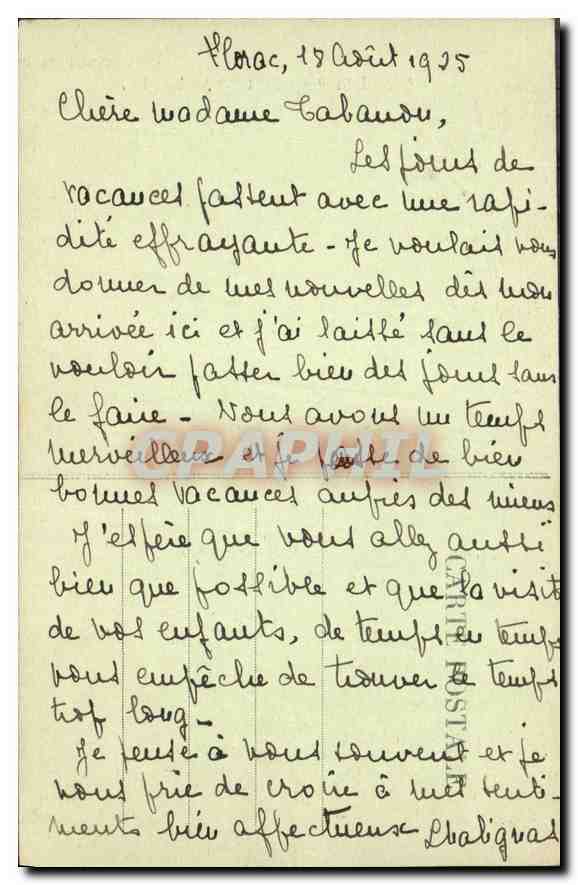 Florac, 18 Août 1925
Chère Madame Cabanon,
Les jours de
vacances passent avec une rapi-
dité effrayante - Je voulais vous
donner de mes nouvelles dès mon
arrivée ici et j'ai laissé sans le
vouloir passer bien des jours sans
le faire - Nous avons un temps
merveilleux et je passe de bien
bonnes vacances auprès des miens
J'espère que vous allez aussi
bien que possible et que la visite
de vos enfants, de temps en temps
vous empêche de trouver le temps
trop long -
Je pense à vous souvent et je
vous prie de croire à mes senti-
ments bien affectueux
CARTE POSTALE
CPAPHIL